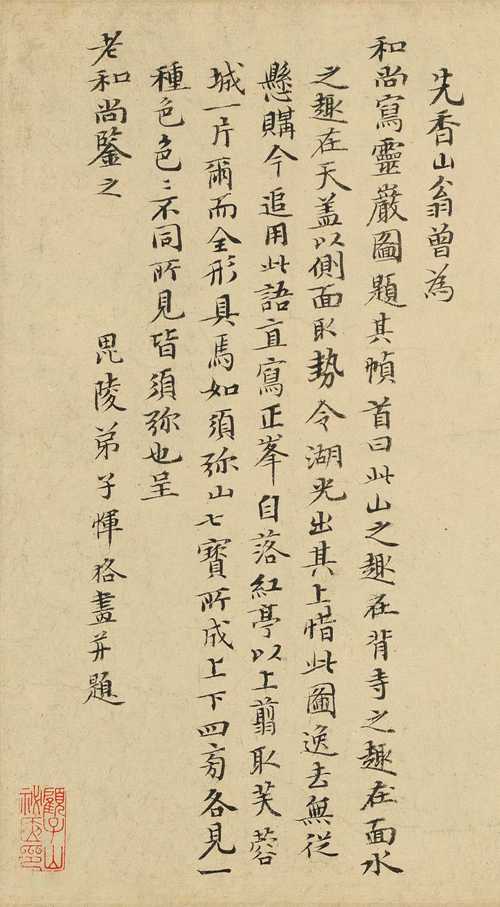 先香山翁曾為
和尚寫靈巖圖題其幀首曰此山之趣在背寺之趣在面水
之趣在天蓋以側面取勢令湖光出其上惜此圖逸去無從
懸購今追用此語直寫正峯自落紅亭以上翦取芙蓉
城一片爾而全形具焉如須弥山七寶所成上下四旁各見一
種色色〻不同所見皆須弥也呈
老和尚鑒之
毘陵弟子惲格畫并題
顧子山
祕玉印